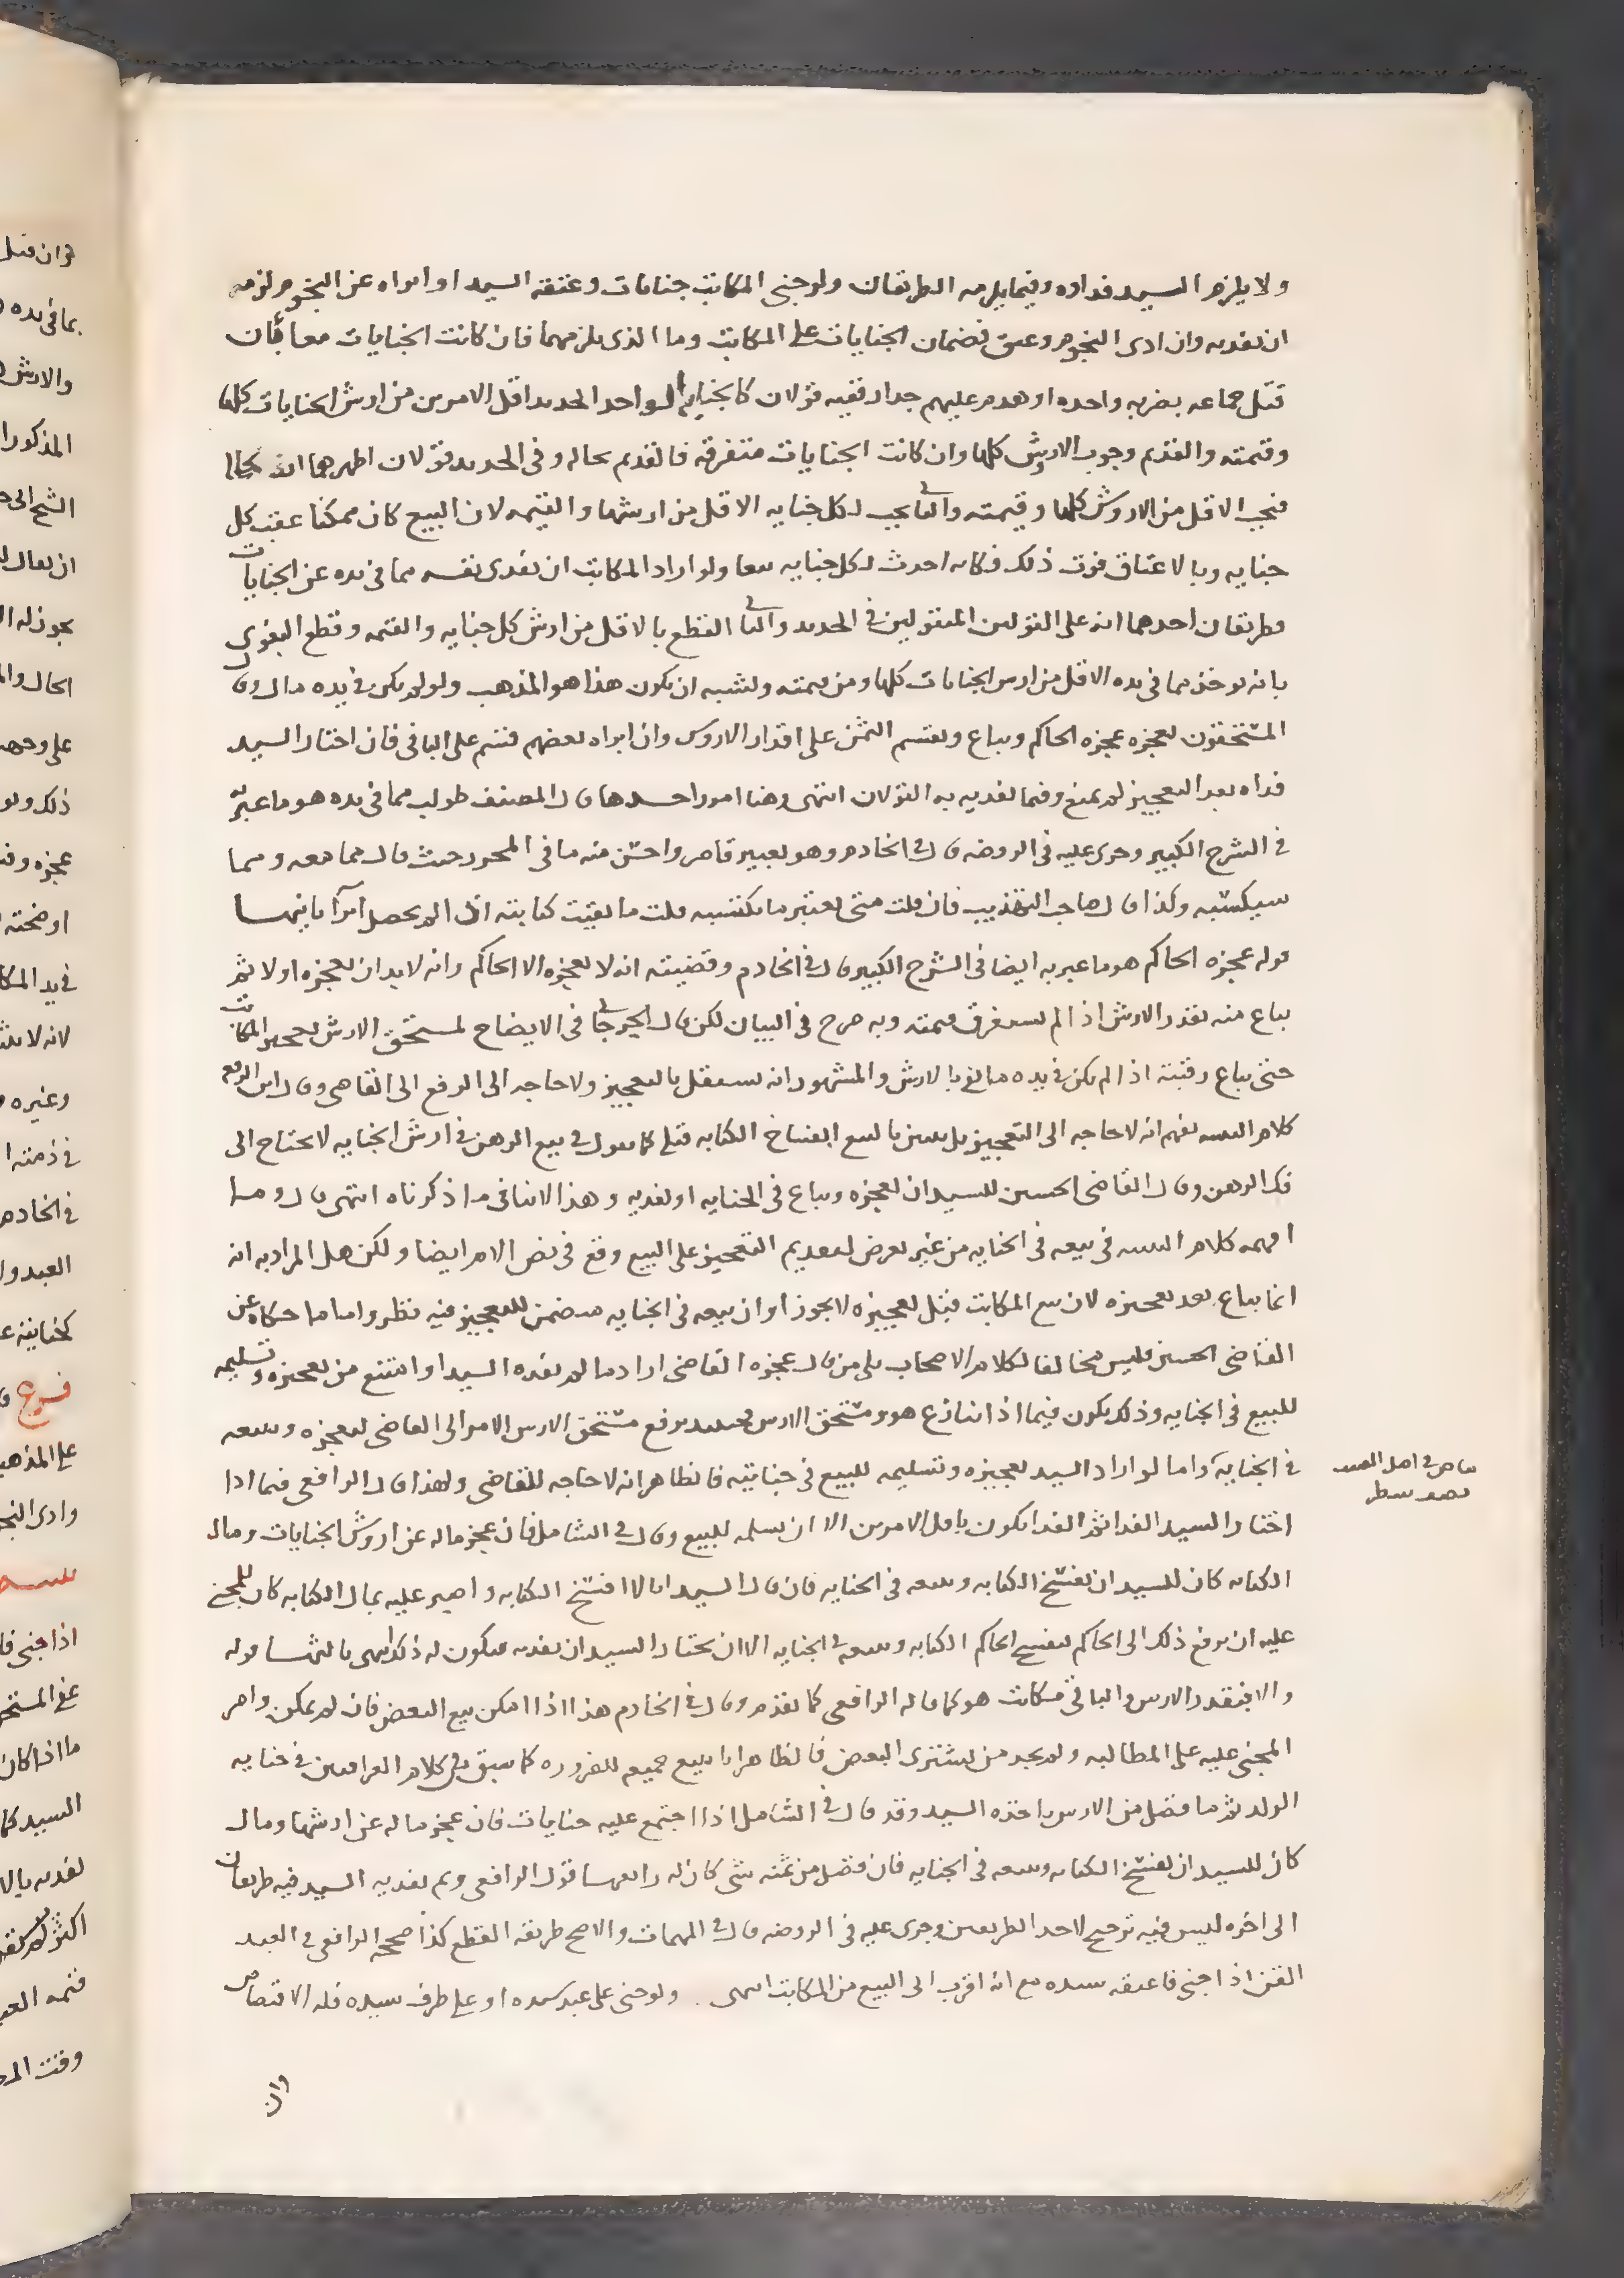 ولا يلزم السيد فداوه وفيما يلزمه الطريقان ولو جنى المكاتب جنايات وعتقه السيد او ابراه عن النجوم لزمه
ان يفديه وان ادى النجوم وعتق فضمان الجنايات على المكاتب وما الذى يلزمهما فان كانت الجنايات معا بان
قتل جماعه بضربه واحده او هدم عليهم جدار ففيه قولان كالجنايه الواحد الجديد اقل الامرين من ارش الجنايات كلها
وقيمته والقديم وجوب الاروش كلها وان كانت الجنايات متفرقه فالقديم بحاله وفى الجديد قولان اظهرهما انه كذلك
فيجب الاقل من الاروش كلها وقيمته والثانى يجب لكل جنايه الاقل من ارشها والقيمه لان البيع كان ممكنا عقب كل
جنايه وبالاعتاق فوت ذلك فكانه احدث لكل جنايه منعا ولو اراد المكاتب ان يفدى نفسه مما فى يده عن الجنايات
فطريقان احدهما انه على القولين المنقولين فى الجديد والثانى القطع بالاقل من ارش كل جنايه والقيمه وقطع البغوى
بانه يوخذ مما فى يده الاقل من ارش الجنايات كلها ومن قيمته ويشبه ان يكون هذا هو المذهب ولو لم يكن فى يده مال وقال
المستحقون لعجزه عجزه الحاكم ويباع ويقسم الثمن على اقدار الاروش وان ابراه بعضهم قسم على الباقى فان اختار السيد
فداه بعد التعجيز لم يمنع وفيما يفديه به القولان انتهى وهنا امور احدها قال المصنف طولب مما فى يده هو ما عبر به
فى الشرح الكبير وجرى عليه فى الروضه قال فى الخادم وهو تعبير قاصر واحسن منه ما فى المحرر حيث قال مما معه ومما
سيكسبه وكذا قال صاحب التهذيب فان قلت متى يعتبر ما يكتسبه قلت ما بقيت كتابته اذا لم يحصل ابرا ثانيها
قوله عجزه الحاكم هو ما عبر به ايضا فى الشرح الكبير قال فى الخادم وقضيته انه لا يعجزه الا الحاكم وانه لا بد ان يعجزه اولا ثم
يباع منه بقدر الارش اذا لم يستغرق قيمته وبه صرح فى البيان لكن قال الجرجانى فى الايضاح لمستحق الارش تعجيز المكاتب
حتى يباع رقبته اذا لم يكن فى يده ما يفى بالارش والمشهور انه يستقل بالتعجيز ولا حاجه الى الرفع الى القاضى وقال ابن الرفعه
كلام التنبيه يفهم انه لا حاجه الى التعجيز بل يتبين بالبيع انفساخ الكتابه قبله كما يقول فى بيع الرهن فى ارش الجنايه لا يحتاج الى
فك الرهن وقال القاضى الحسين للسيد ان يعجزه ويباع فى الجنايه او يفديه وهذا لا ينافى ما ذكرناه انتهى قال وما
افهمه كلام التنبيه فى بيعه فى الجنايه من غير تعرض لتقديم التعجيز على البيع وقع فى نص الام ايضا ولكن هل المراد به انه
انما يباع بعد تعجيزه لان بيع المكاتب قبل تعجيزه لا يجوز او ان بيعه فى الجنايه متضمن للتعجيز فيه نظر واما ما حكاه عن
القاضى الحسين فليس مخالفا لكلام الاصحاب بل من قال عجزه القاضى اراد ما لم يفده السيد او امتنع من تعجيزه وتسليمه
للبيع فى الجنايه وذلك يكون فيما اذا تنازع هو ومستحق الارش فحينئذ يرفع مستحق الارش الامر الى القاضى ليعجزه ويبيعه
فى الجنايه واما لو اراد السيد تعجيزه وتسليمه للبيع فى جنايته فالظاهر انه لا حاجه للقاضى ولهذا قال الرافعى فيما اذا
اختار السيد الفدا ثم الفدا يكون باقل الامرين الا ان يسلمه للبيع وقال فى الشامل فان عجز ماله عن اروش الجنايات ومال
الكتابه كان للسيد ان يفسخ الكتابه ويبيعه فى الجنايه فان قال السيد انا لا افسخ الكتابه واصبر عليه بمال الكتابه كان للمجنى
عليه ان يرفع ذلك الى الحاكم ليفسخ الحاكم الكتابه ويبيعه فى الجنايه الا ان يختار السيد ان يفديه فيكون له ذلك انتهى ثالثها قوله
والا فبقدر الارش والباقى مكاتب هو كما قاله الرافعى كما تقدم وقال فى الخادم هذا اذا امكن بيع البعض فان لم يمكن واصر
المجنى عليه على المطالبه ولم يجد من يشترى البعض فالظاهر انا نبيع جميعه للضروره كما سبق فى كلام العراقيين فى جنايه
الولد ثم ما فضل من الارش ياخذه السيد وقد قال فى الشامل اذا اجتمع عليه جنايات فان عجز ماله عن ارشها ومال
كان للسيد ان يفسخ الكتابه ويبيعه فى الجنايه فان فضل من ثمنه شى كان له رابعها قول الرافعى وبم يفديه السيد فيه طريقان
الى اخره ليس فيه ترجيح لاحد الطريقين وجرى عليه فى الروضه قال فى المهمات والاصح طريقه القطع كذا صححه الرافعى فى العبد
القن اذا جنى فاعتقه سيده مع انه اقرب الى البيع من المكاتب انتهى ولو جنى على عبد سيده او على طرف سيده فله الاقتصاص
وان
بياض فى اصل
سطر